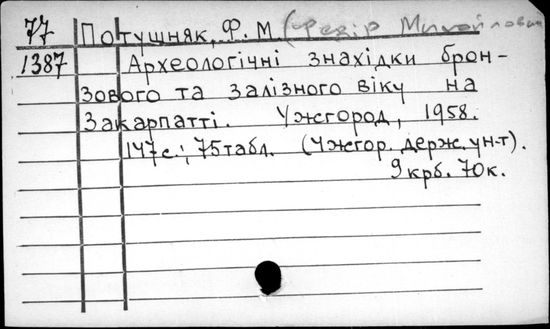 77 Потушняк, Ф. М. (Федір Михайлович
1387 Археологічні знахідки брон-
зового та залізного віку на
Закарпатті. Ужгород, 1958.
147с.; 75табл. (Ужгор. держ. ун-т).
9крб. 70к.